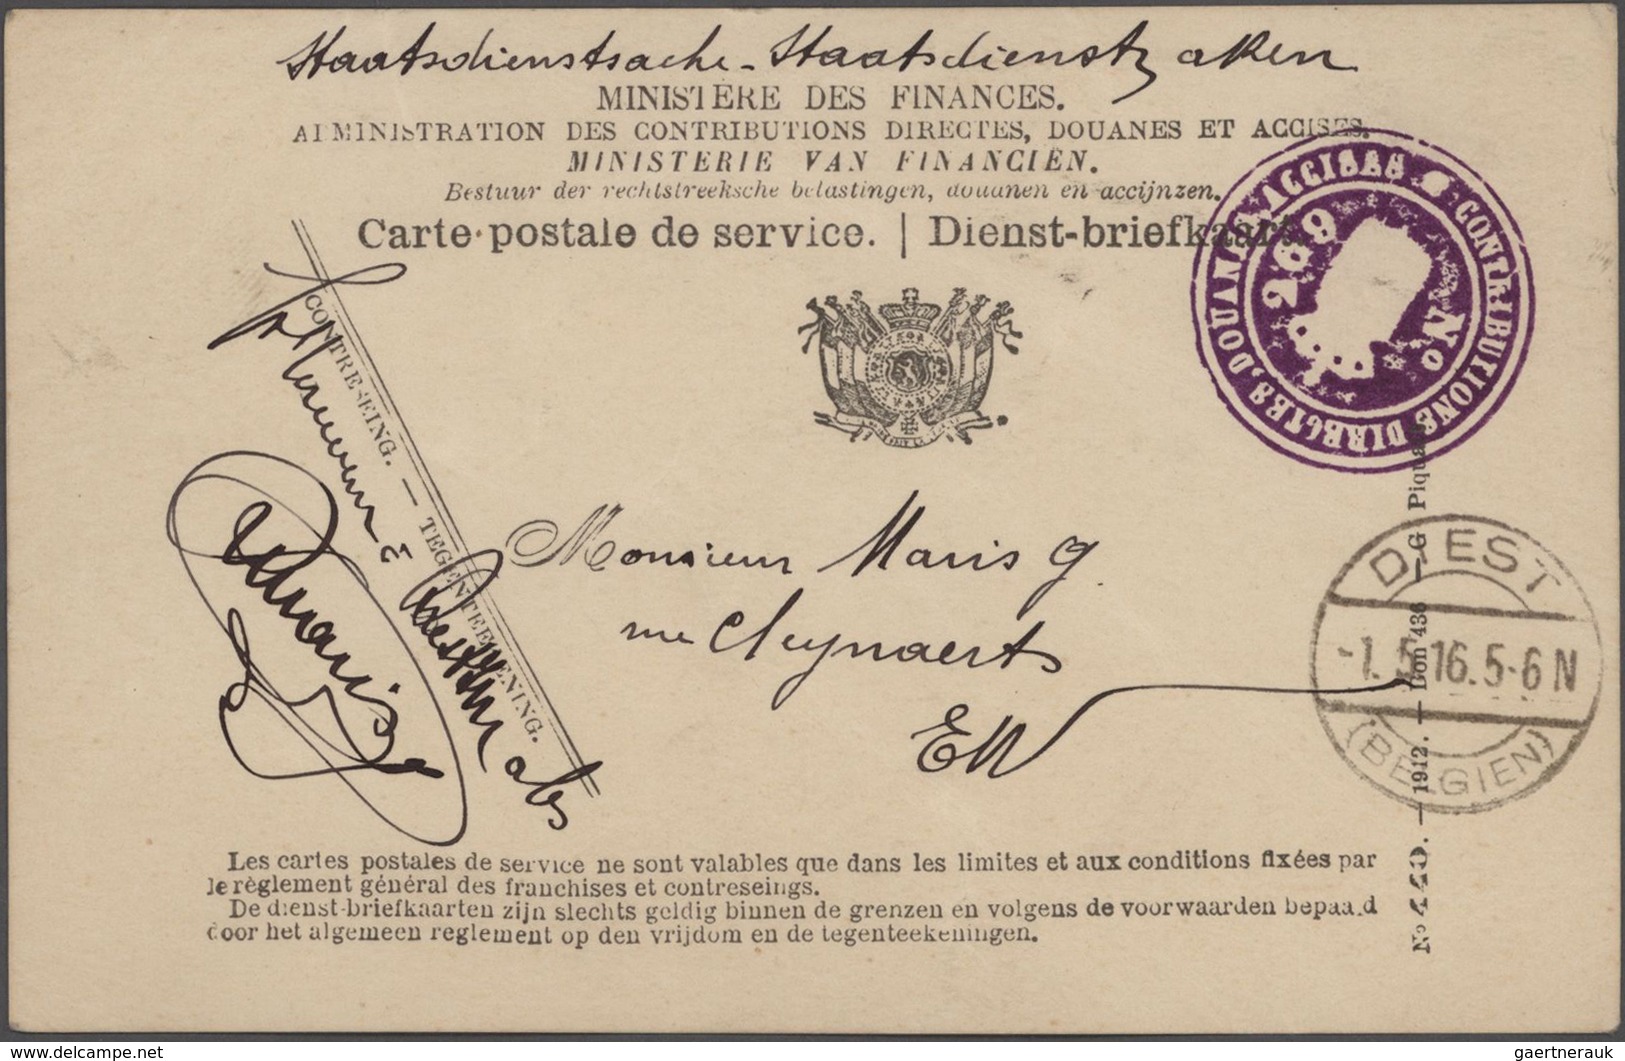 Staatsdienstsache - Staatsdienstzaken
MINISTÈRE DES FINANCES.
ADMINISTRATION DES CONTRIBUTIONS DIRECTES, DOUANES ET ACCISES.
MINISTERIE VAN FINANCIËN.
Bestuur der rechtstreeksche belastingen, douanen en accijnzen.
Carte postale de service. | Dienst-briefkaart.
CONTRIBUTIONS DIRECTES, DOUANES & ACCISES
No 269
CONTRESEING. — TEGENTEEKENING.
Monsieur Maris G
rue Cluynaerts
E/V
DIEST
-1.5.16.5-6 N
(BELGIEN)
No 440. — 1912. — Bon 436 — G Piquart
Les cartes postales de service ne sont valables que dans les limites et aux conditions fixées par
le règlement général des franchises et contreseings.
De dienst-briefkaarten zijn slechts geldig binnen de grenzen en volgens de voorwaarden bepaald
door het algemeen reglement op den vrijdom en de tegenteekeningen.
delcampe.net
gaertnerauk